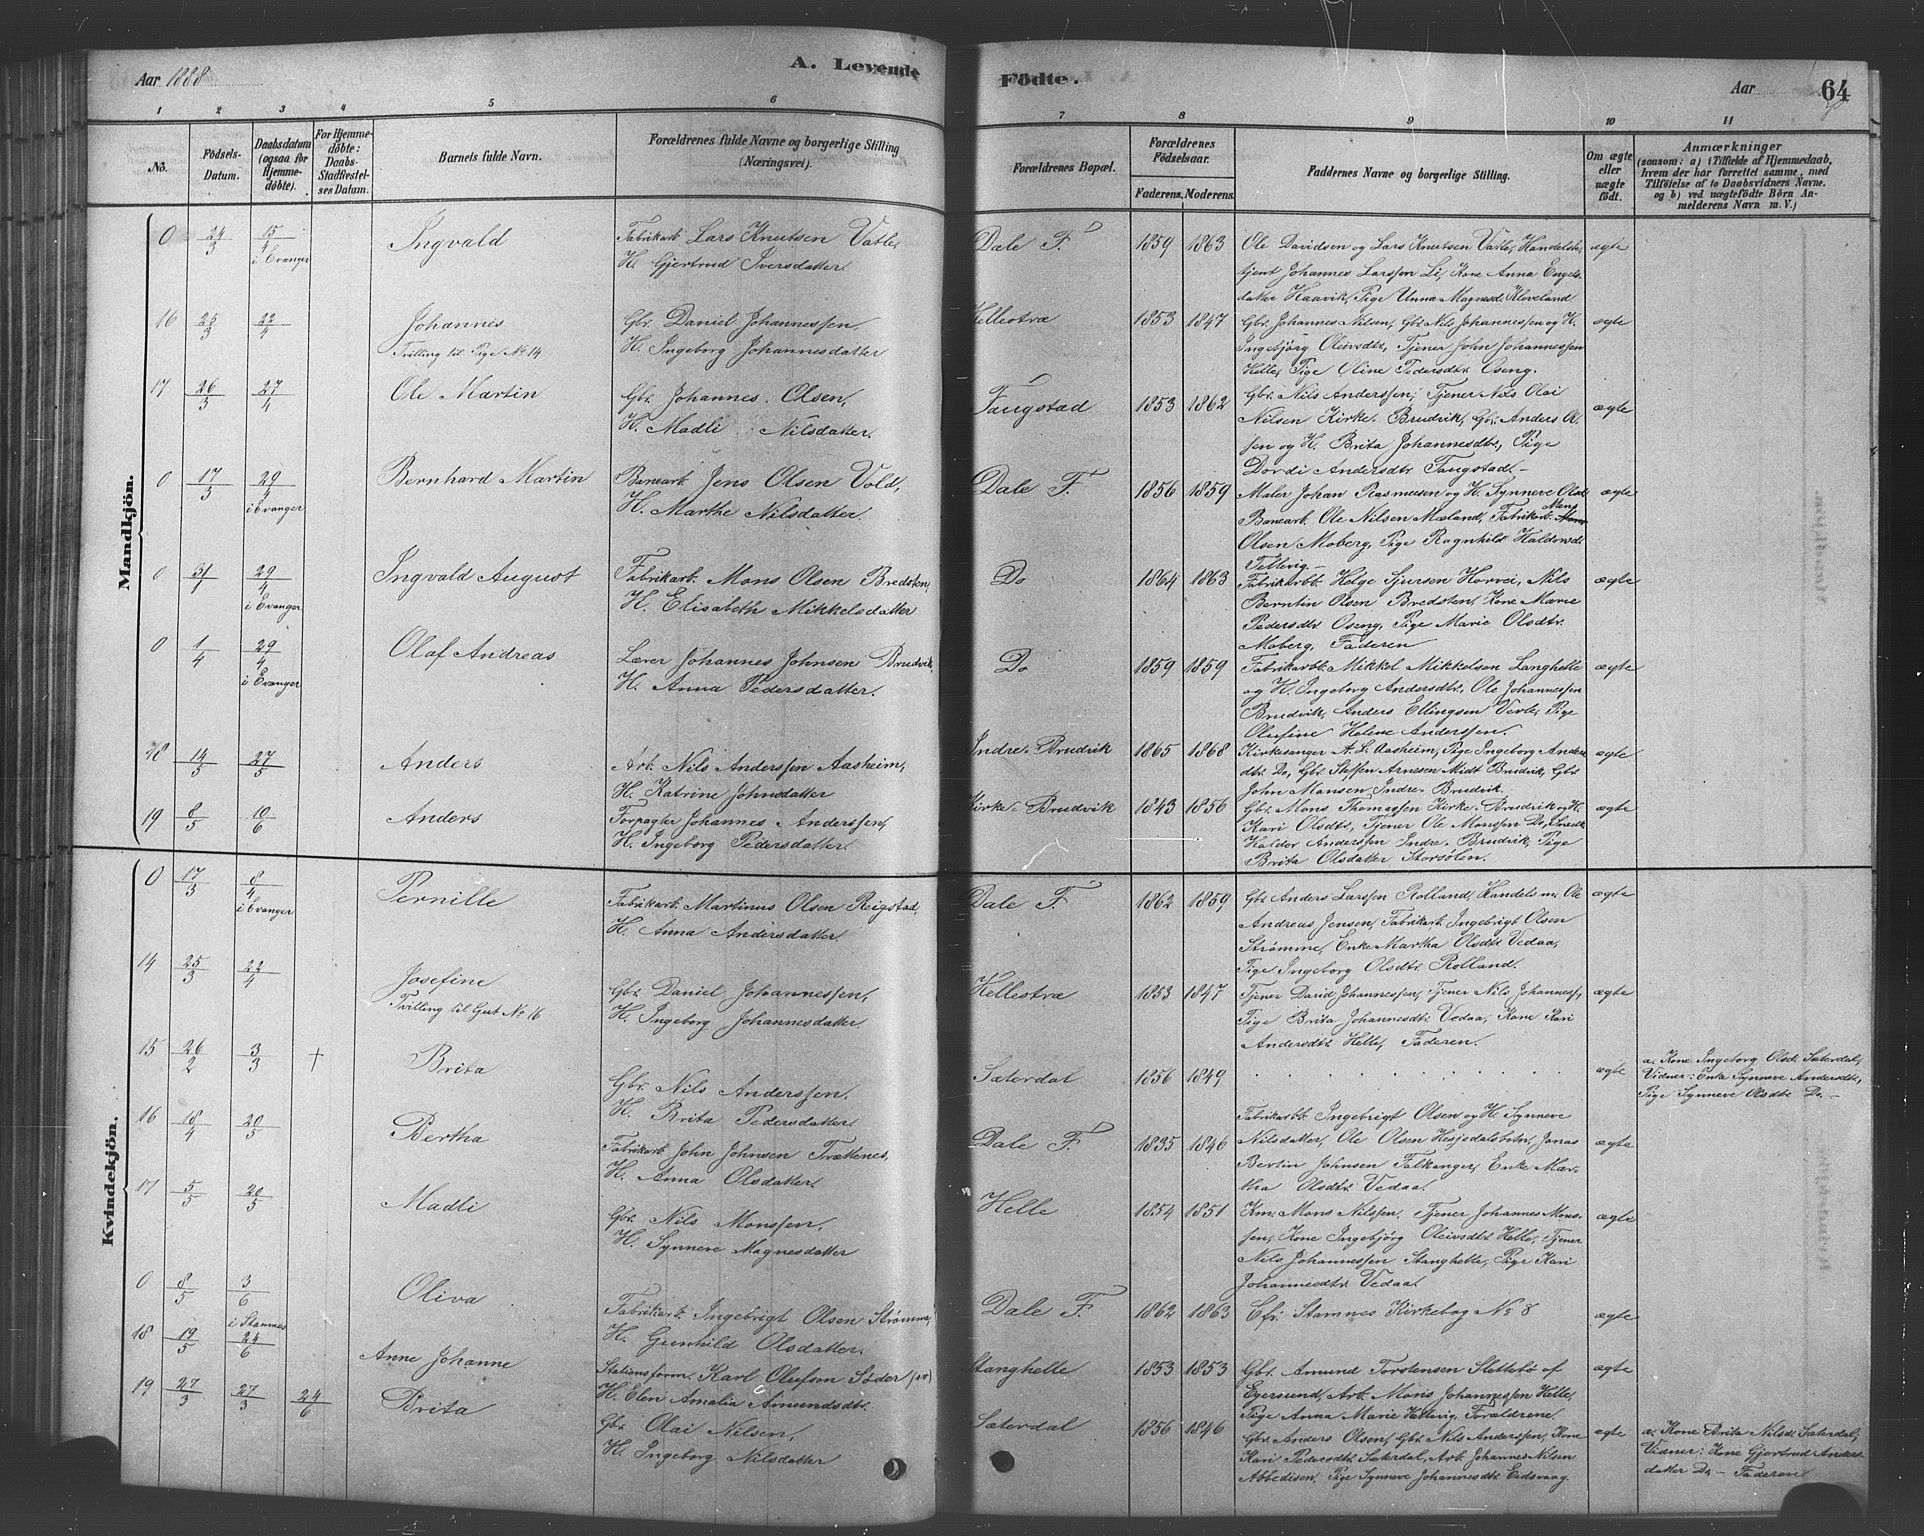 Aar 1888
A. Levende
Födte.
Aar
64
1 2 3 4 5 6 7 8 9 10 11
No.
Födsels-
Datum.
Daabsdatum
(ogsaa for
Hjemme-
döbte).
For Hjemme-
döbte:
Daabs-
Stadfæstel-
ses Datum.
Barnets fulde Navn.
Forældrenes fulde Navne og borgerlige Stilling
(Næringsvei).
Forældrenes Bopæl.
Forældrenes
Födselsaar.
Faderens. Moderens.
Faddernes Navne og borgerlige Stilling.
Om ægte
eller
uægte
født.
Anmærkninger
(saasom: a) i Tilfælde af Hjemmedaab,
hvem der har forrettet samme, med
Tilföielse af to Daabsvidners Navne,
og b) ved uægtefödte Börn An-
melderens Navn m. V.)
Mandkjön.
0 24/3 15/4 i Evanger Ingvald
Fabrikarb. Lars Knutsen Vatle,
H. Gjertrud Iversdatter.
Dale F. 1859 1863
Ole Davidsen og Lars Knutsen Vatle, Handels-
tjent Johannes Larssen Li, Kone Anna Engels-
datter Haavik, Pige Unna Magnesd. Kleveland
ægte
16 25/3 22/4 Johannes
Tvilling til Pige No 14
Gbr. Daniel Johannessen,
H. Ingeborg Johannesdatter
Hellestræ 1853 1847
Gbr. Johannes Nilsen, Gbr. Nils Johannessen og H.
Ingebjörg Oleivsdtr., Tjener John Johannessen
Helle, Pige Oline Pedersdtr. Oseng.
ægte
17 26/3 27/4 Ole Martin
Gbr. Johannes Olsen,
H. Madli Nilsdatter.
Fangstad 1853 1862
Gbr. Nils Anderssen, Tjener Nils Olai
Nilsen Kirke-Brudvik, Gbr. Anders Ol-
sen og H. Brita Johannesdtr., Pige
Dordi Andersdtr. Fangstad.
ægte
0 17/3 29/4 i Evanger Bernhard Martin
Banearb. Jens Olsen Vold,
H. Marthe Nilsdatter.
Dale F. 1856 1859
Maler Johan Rasmusen og H. Synneve Olsd.
Banearb. Ole Nilsen Mæland, Fabrikarb. Mons
Olsen Moberg, Pige Ragnhild Haldorsd.
Tellevig.
ægte
0 31/ 29/4 i Evanger Ingvald August
Fabrikarb. Mons Olsen Bredsten,
H. Elisabeth Mikkelsdatter
Do 1864 1863
Fabrikarbb. Helge Sjursen Horvei, Nils
Berntin Olsen Bredsten, Kone Marie
Pedersdtr. Oseng, Pige Marie Olsdtr.
Moberg, Faderen
ægte
0 1/4 29/4 i Evanger Olaf Andreas
Lærer Johannes Johnsen Brudvik
H. Anna Pedersdatter.
Do 1859 1859
Fabrikarbb. Mikkel Mikkelsen Langhelle
og H. Ingeborg Andersdtr., Ole Johannessen
Brudvik, Anders Ellingsen Verle, Pige
Olufine Helene Anderssen.
ægte
18 14/5 27/5 Anders
Arb. Nils Anderssen Aasheim,
H. Katrine Johnsdatter
Indre-Brudvik 1865 1868
Kirkesanger A. L. Aasheim, Pige Ingeborg Anders-
dtr. Do, Gbr. Steffen Arnesen Midt Brudvik, Gbr.
John Monsen Indre-Brudvik.
ægte
19 8/5 10/6 Anders
Forpagter Johannes Anderssen,
H. Ingeborg Pedersdatter.
Kirke-Brudvik 1843 1856
Gbr. Mons Thomassen Kirke-Brudvik og H.
Kari Olsdtr., Tjener Ole Monssen Do, Smed
Haldor Anderssen Indre-Brudvik, Pige
Brita Olsdatter Storsölen.
ægte
Kvindekjön.
0 17/3 8/4 i Evanger Pernille
Fabrikarb. Martinus Olsen Reigstad,
H. Anna Andersdatter.
Dale F. 1862 1859
Gbr. Anders Larssen Rolland, Handelsm. Ole
Andreas Jensen, Fabrikarb. Ingebrigt Olsen
Strømme, Enke Martha Olsdtr. Vedaa,
Pige Ingeborg Olsdtr. Rolland.
ægte
14 25/3 22/4 Josefine
Tvilling til Gut No 16
Gbr. Daniel Johannessen,
H. Ingeborg Johannesdatter.
Hellestræ 1853 1847
Tjener David Johannessen, Tjener Nils Johanness.,
Pige Brita Johannesdtr. Vedaa, Kone Kari
Andersdtr. Helle, Faderen.
ægte
15 26/2 3/3 † Brita
Gbr. Nils Anderssen.
H. Brita Pedersdatter.
Sæterdal 1856 1849
ægte
a. Kone Ingeborg Olsd. Sæterdal,
Vidner: Enke Synneve Andersdtr.,
Pige Synneve Olsdtr. Do.
16 18/4 20/5 Bertha
Fabrikarb. John Johnsen Trættenes,
H. Anna Olsdatter.
Dale F. 1835 1846
Fabrikarbb. Ingebrigt Olsen og H. Synneve
Nilsdatter, Ole Olsen Hesjedalsbotn, Jonas
Bertin Johnsen Falkanger, Enke Mar-
tha Olsdtr. Vedaa.
ægte
17 5/5 20/5 Madli
Gbr. Nils Monssen,
H. Synneve Magnesdatter
Helle 1854 1851
Km. Mons Nilssen, Tjener Johannes Mons-
sen, Kone Ingebjörg Oleivsdtr. Helle, Tjener
Nils Johannessen Stanghelle, Pige Kari
Johannesdtr. Vedaa.
ægte
0 8/5 3/6 i Stamnes Oliva
Fabrikarb. Ingebrigt Olsen Strømme,
H. Gunhild Olsdatter.
Dale F. 1862 1863
Cfr. Stamnes Kirkebog No 8
ægte
18 19/5 24/6 Anne Johanne
Stationsform. Karl Olufsen Söder
H. Elen Amalia Amundsdtr.
Stanghelle 1853 1853
Gbr. Amund Torstensen Slettebö af
Egersund, Arb. Mons Johannessen Helle,
Pige Anna Marie Hettevig, Forældrene
ægte
19 27/3 27/3 24/6 Brita
Gbr. Olai Nilsen,
H. Ingeborg Nilsdatter
Sæterdal 1856 1846
Gbr. Anders Olsen, Gbr. Nils Anderssen, Kone
Kari Pedersdtr. Sæterdal, Arb. Johannes Nilsen
Abbedisen, Pige Synneve Johannesdtr. Eidsvaag
ægte
a. Kone Brita Nilsd. Sæterdal,
Vidner: Kone Gjertrud Anders-
datter Do. – Faderen